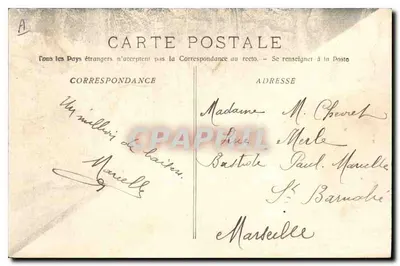 A
CARTE POSTALE
Tous les Pays étrangers n'acceptent pas la Correspondance au recto. - Se renseigner à la Poste
CORRESPONDANCE
Un million de baisers.
Marcelle
ADRESSE
Madame M. Chouret
Merle
Bastide Paul Marcelle
St Barnabé
Marseille
CPARAMA